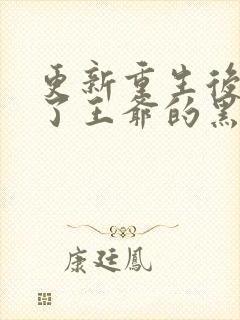 更新重生後
了王爺的黑
康廷鳳